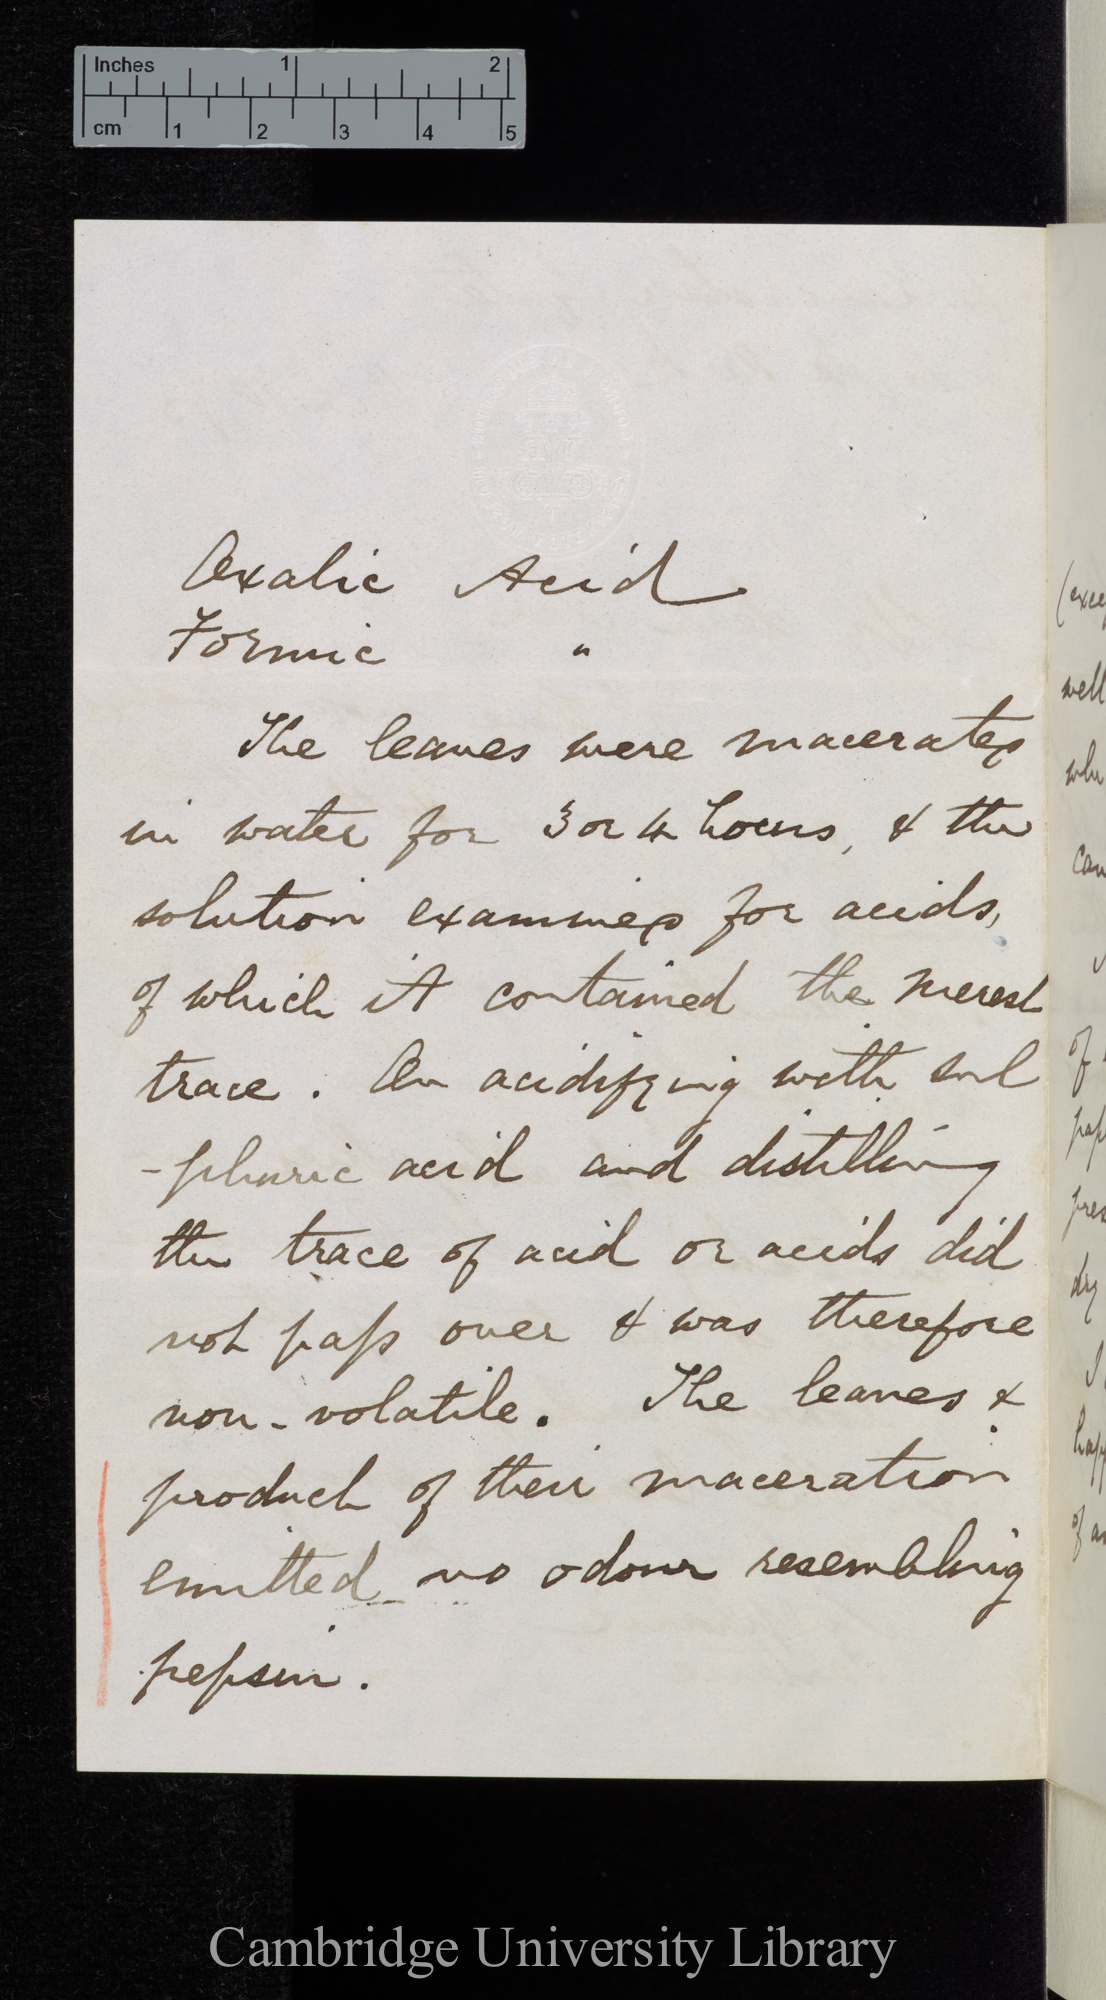 Inches 1 2
cm 1 2 3 4 5
Oxalic Acid
Formic "
The leaves were macerated
in water for 3 or 4 hours, & the
solution examined for acids,
of which it contained the merest
trace. On acidifying with sul
-phuric acid and distilling
the trace of acid or acids did
not pass over & was therefore
non-volatile. The leaves &
product of their maceration
emitted no odour resembling
pepsin.
well
of
Cambridge University Library